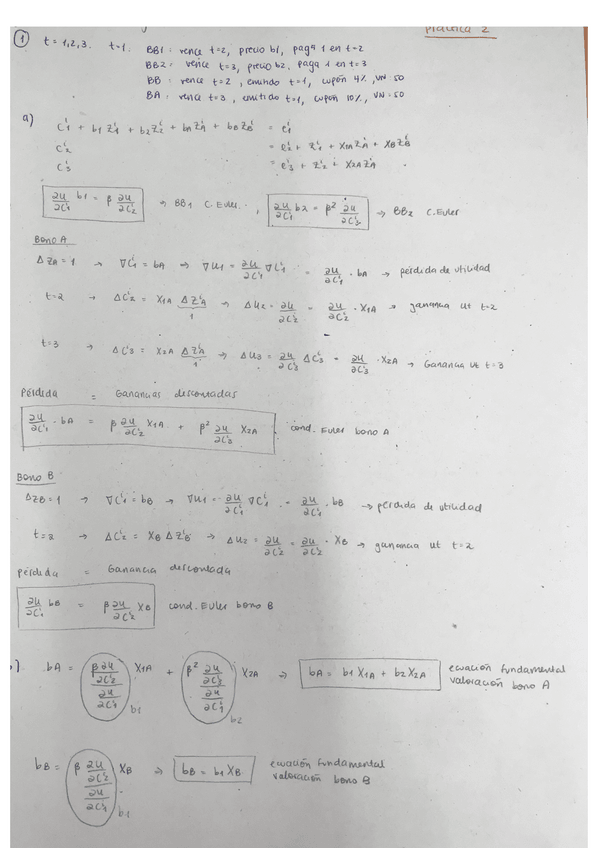 Práctica 2
① t = 1,2,3. t=1. BB1: vence t=2, precio b1, paga 1 en t=2
BB2 = vence t=3, precio b2. paga 1 en t=3
BB = vence t=2, emitido t=1, cupón 4%, VN 50
BA: vence t=3, emitido t=1, cupón 10%, VN=50
a)
C₁ⁱ + b1 Z₁ⁱ + b2 Z₂ⁱ + bA Z_Aⁱ + bB Z_Bⁱ = e₁ⁱ
C₂ⁱ = e₂ⁱ + Z₁ⁱ + X1A Z_Aⁱ + X_B Z_Bⁱ
C₃ⁱ = e₃ⁱ + Z₂ⁱ + X2A Z_Aⁱ
∂u/∂C₁ⁱ b1 = β ∂u/∂C₂ⁱ → BB1 C.Euler. , ∂u/∂C₁ⁱ b2 = β² ∂u/∂C₃ⁱ → BB2 C.Euler
Bono A
ΔZ_A = 1 → ∇C₁ⁱ = bA → ∇u1 = ∂u/∂C₁ⁱ ∇C₁ⁱ = ∂u/∂C₁ⁱ · bA → pérdida de utilidad
t=2 → ΔC₂ⁱ = X1A ΔZ_Aⁱ → Δu2 = ∂u/∂C₂ⁱ = ∂u/∂C₂ⁱ · X1A → ganancia ut t=2
1
t=3 → ΔC₃ⁱ = X2A ΔZ_Aⁱ → Δu3 = ∂u/∂C₃ⁱ ΔC₃ⁱ = ∂u/∂C₃ⁱ · X2A → Ganancia ut t=3
1
Pérdida = Ganancias descontadas
∂u/∂C₁ⁱ · bA = β ∂u/∂C₂ⁱ X1A + β² ∂u/∂C₃ⁱ X2A cond. Euler bono A
Bono B
ΔZB = 1 → ∇C₁ⁱ = bB → ∇u1 = ∂u/∂C₁ⁱ ∇C₁ⁱ = ∂u/∂C₁ⁱ · bB → perdida de utilidad
t=2 → ΔC₂ⁱ = X_B ΔZ_Bⁱ → Δu2 = ∂u/∂C₂ⁱ = ∂u/∂C₂ⁱ · X_B → ganancia ut t=2
pérdida = Ganancia descontada
∂u/∂C₁ⁱ bB = β ∂u/∂C₂ⁱ XB cond. Euler bono B
) bA = (β ∂u/∂C₂ⁱ / ∂u/∂C₁ⁱ) X1A + (β² ∂u/∂C₃ⁱ / ∂u/∂C₁ⁱ) X2A ⇒ bA = b1 X1A + b2 X2A ecuación fundamental
b1 b2 valoración bono A
bB = (β ∂u/∂C₂ⁱ / ∂u/∂C₁ⁱ) XB ⇒ bB = b1 XB ecuación fundamental
b1 valoración bono B